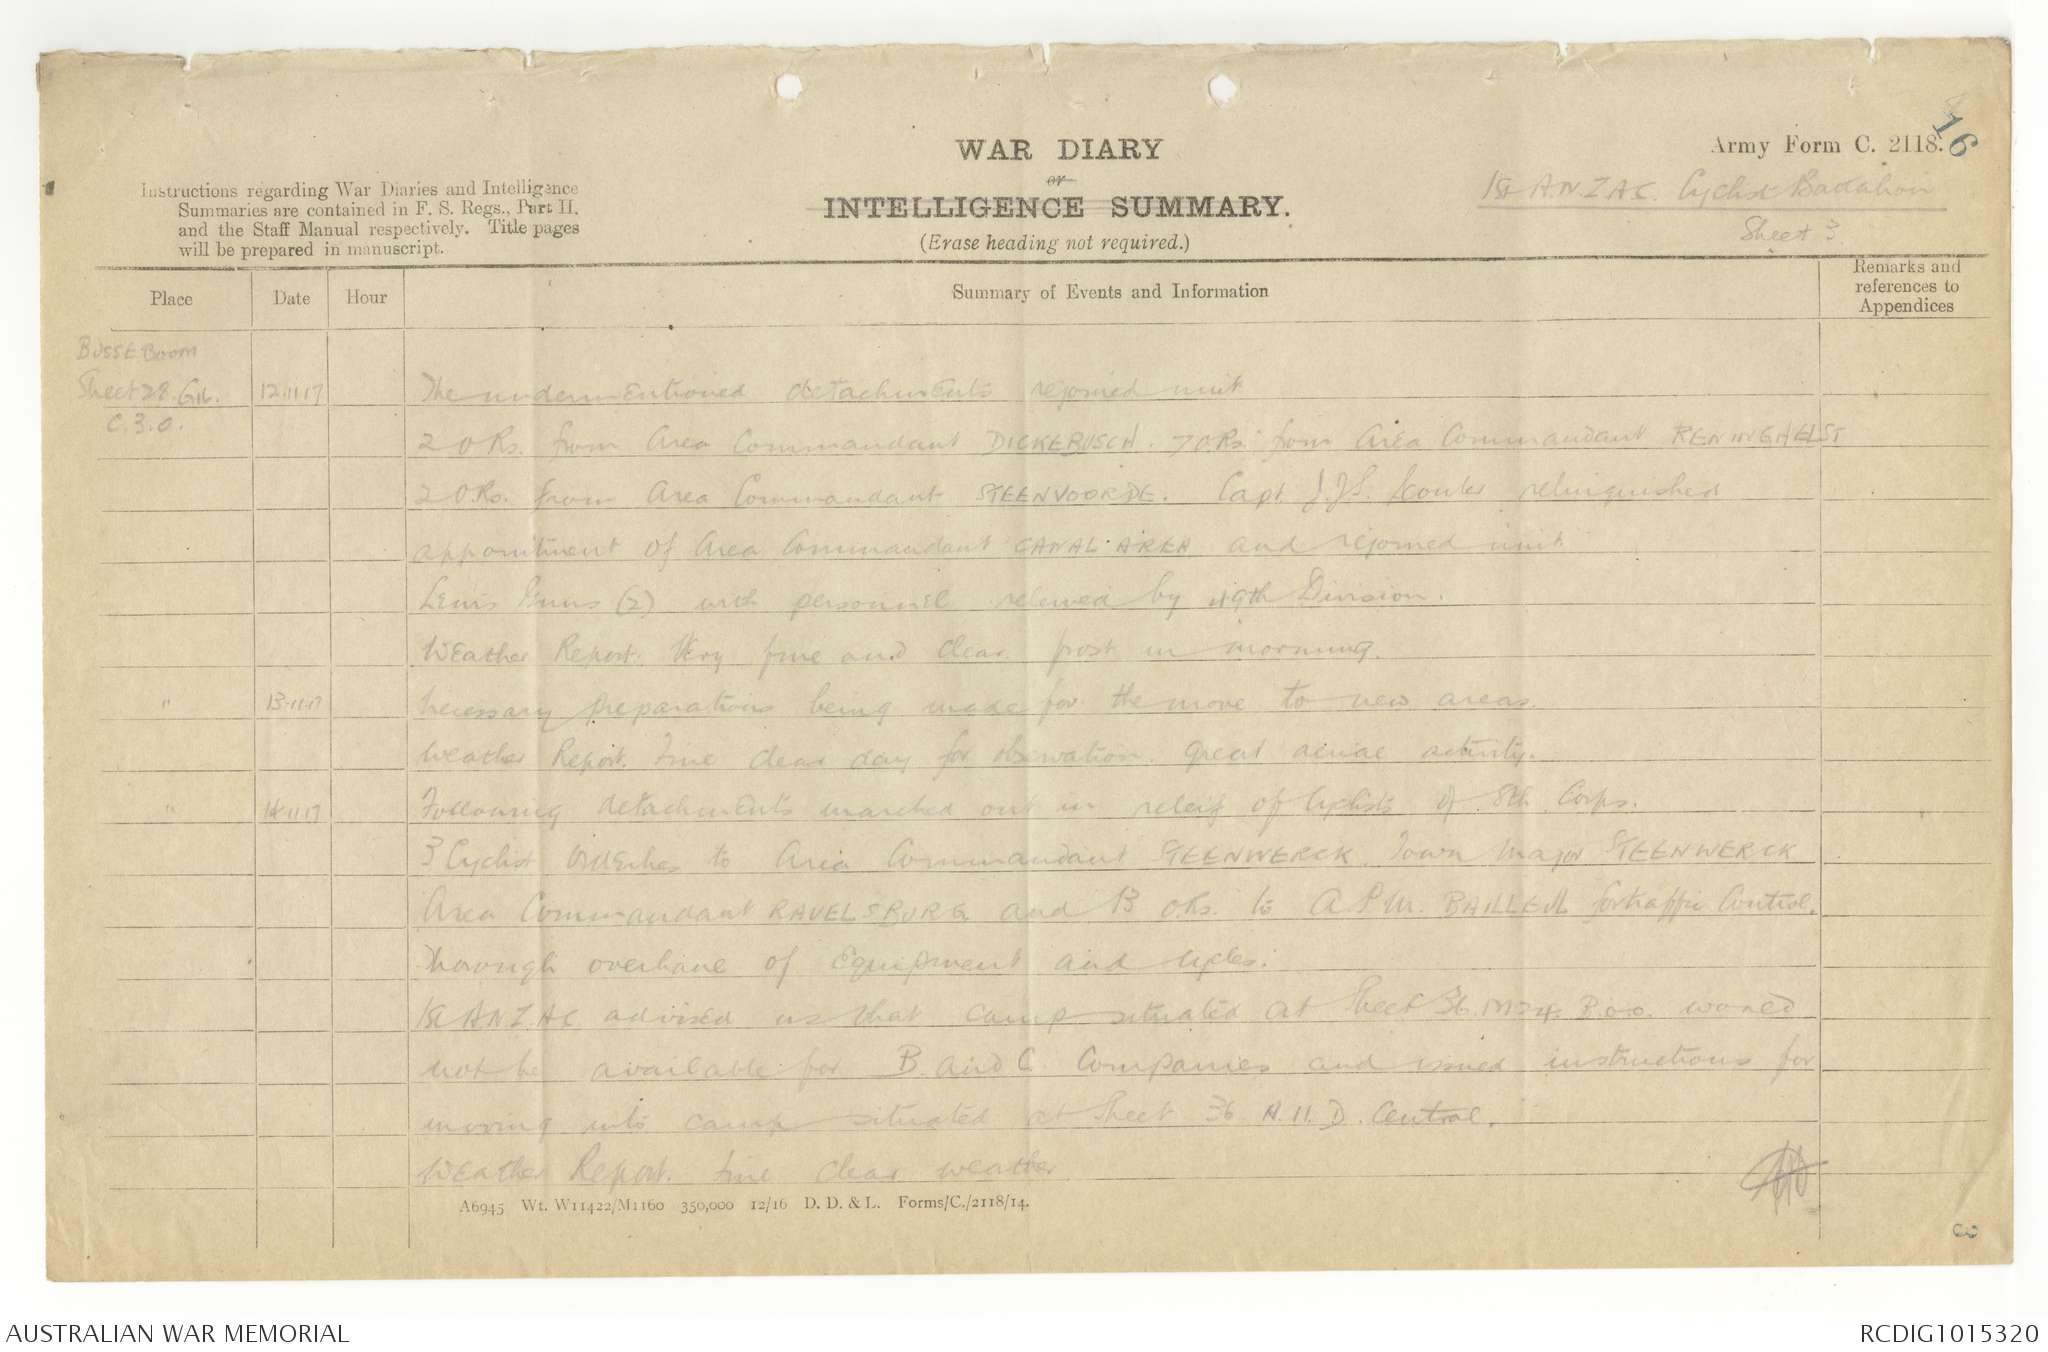 WAR DIARY
or
INTELLIGENCE SUMMARY.
(Erase heading not required.)
Army Form C. 2118.
16
Instructions regarding War Diaries and Intelligence
Summaries are contained in F. S. Regs., Part II.
and the Staff Manual respectively. Title pages
will be prepared in manuscript.
1st A.N.Z.A.C. Cyclist Battalion
Sheet 3.
Place Date Hour Summary of Events and Information Remarks and references to Appendices
BUSSEBOOM
Sheet 28. G16. 12.11.17 The undermentioned detachments rejoined unit
C.3.0.
2 O.Rs. from Area Commandant DICKEBUSCH. 7 O.Rs. from Area Commandant RENINGHELST
2 O.Rs. from Area Commandant STEENVOORDE. Capt. relinquished
appointment of Area Commandant CANAL AREA and rejoined unit
Lewis Guns (2) with personnel relieved by 49th Division.
Weather Report. Very fine and clear frost in morning.
" 13.11.17 Necessary preparations being made for the move to new areas.
Weather Report. Fine clear day for observation. Great aerial activity.
" 14.11.17 Following detachments marched out in releif of Cyclists of 8th Corps.
3 Cyclist Orderlies to Area Commandant STEENWERCK Town Major STEENWERCK
Area Commandant RAVELSBURG and 13 O.Rs. to A.P.M. BAILLEUL for traffic Control.
Thorough overhaul of Equipment and cycles.
1st ANZAC advised us that camp situated at Sheet 36. B.0.0. would
not be available for B and C Companies and issued instructions for
moving into camp situated at Sheet 36. A.11.D. Central.
Weather Report. Fine clear weather
A6945 Wt. W11422/M1160 350,000 12/16 D. D. & L. Forms/C./2118/14.
3
AUSTRALIAN WAR MEMORIAL
RCDIG1015320